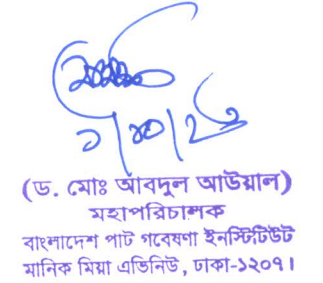 (ড. মোঃ আবদুল আউয়াল)
মহাপরিচালক
বাংলাদেশ পাট গবেষণা ইনস্টিটিউট
মানিক মিয়া এভিনিউ, ঢাকা-১২০৭।